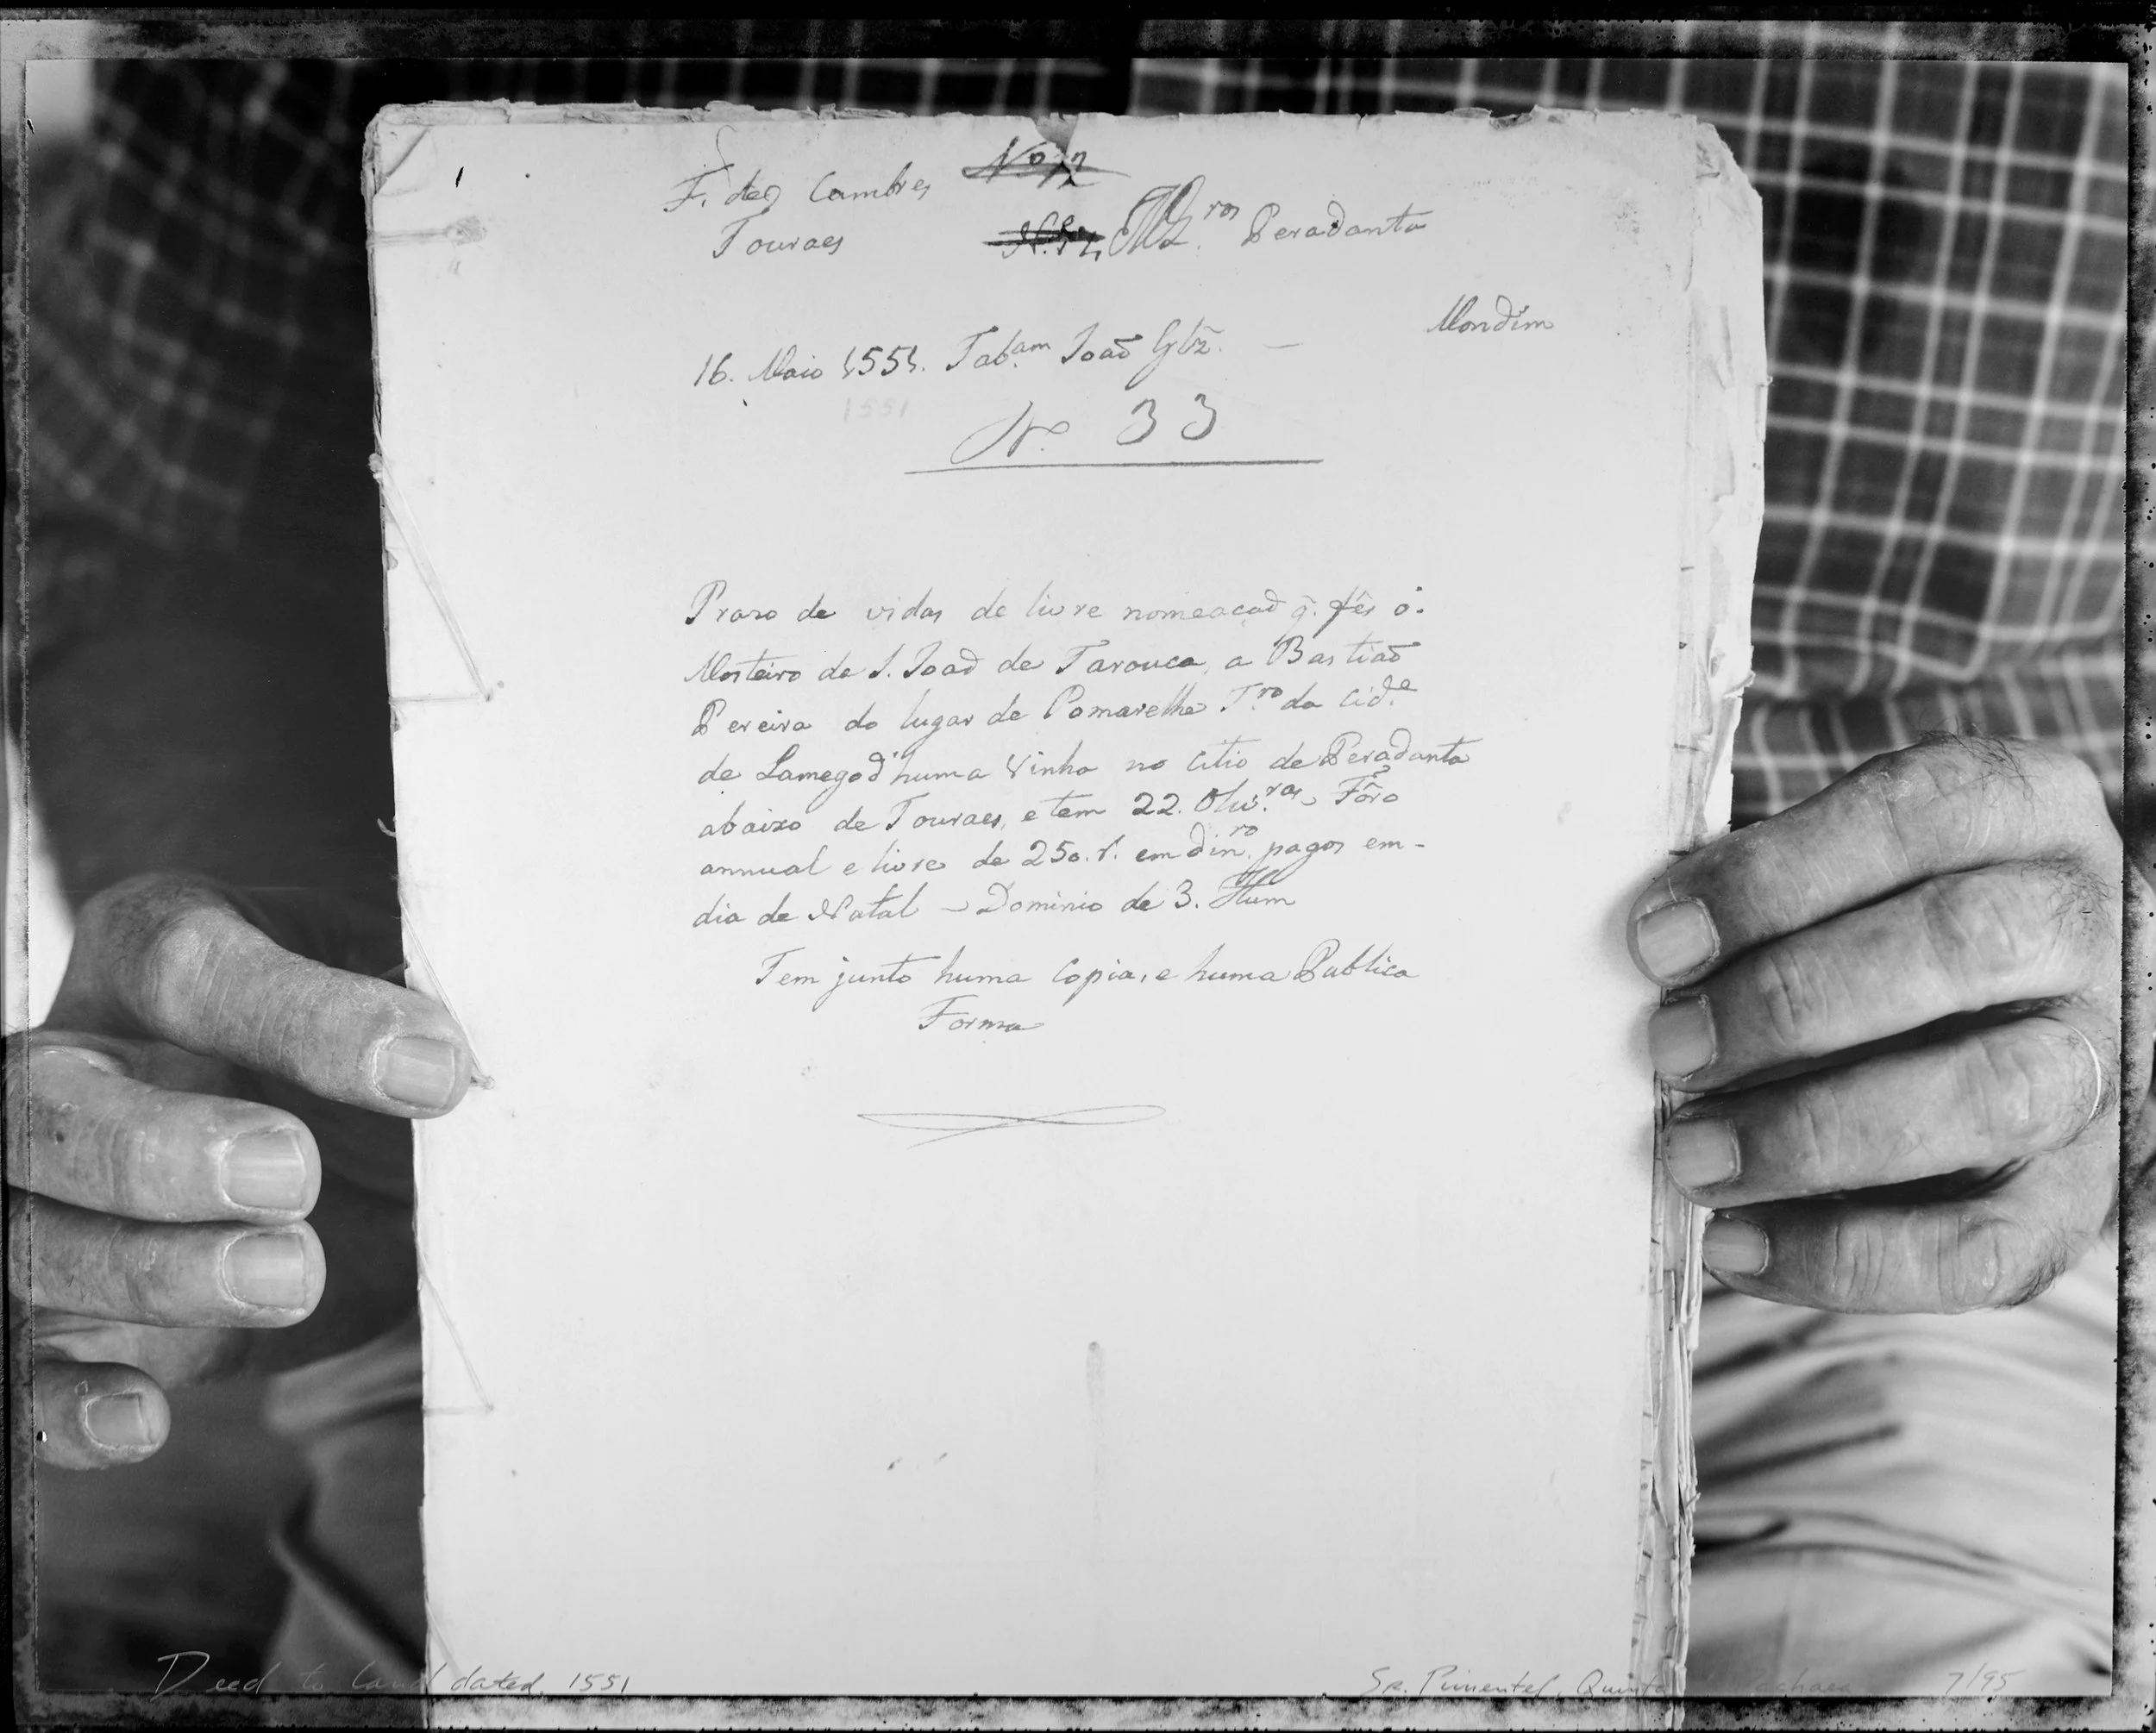 F. de Cambres
Nº 12
Touraes
Peradanta
Mondim
16. Maio 1551. Tab.am João Glz̃.
1551
Nº 33
Praso de vidas de livre nomeaçaõ q̃. fês o.
Mosteiro de S. Joaõ de Tarouca, a Bastiaõ
Pereira do lugar de Pomarelho T.ro da Cid.e
de Lamego d'huma Vinha no Citio de Peradanta
abaixo de Touraes, e tem 22. Oliv.ras Fôro
annual e livre de 250. r. em din.ro pagos em-
dia de Natal - Dominio de 3. Hum
Tem junto huma Copia, e huma Publica
Forma
Deed to land dated 1551
Sr. Pimentel, Quinta 7/95